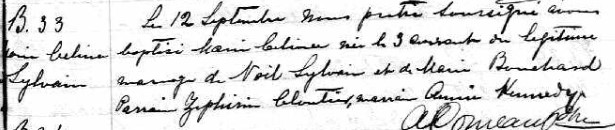 B. 33
Marie Celina
Sylvain
Le 12 Septembre nous prêtre soussigné avons
baptisé Marie Celina née le 3 courant du légitime
mariage de Noël Sylvain et de Marie Bouchard
Parrain Zéphirin Cloutier, marraine Annie Kennedy.